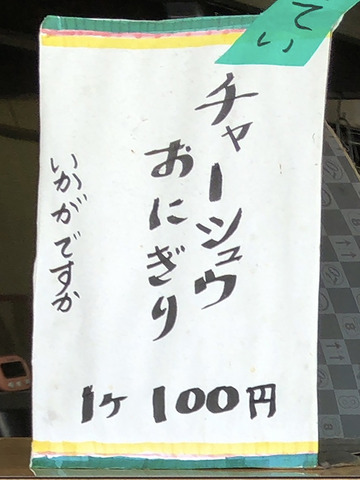 てい
チャーシュウ
おにぎり
いかがですか
1ケ 100円